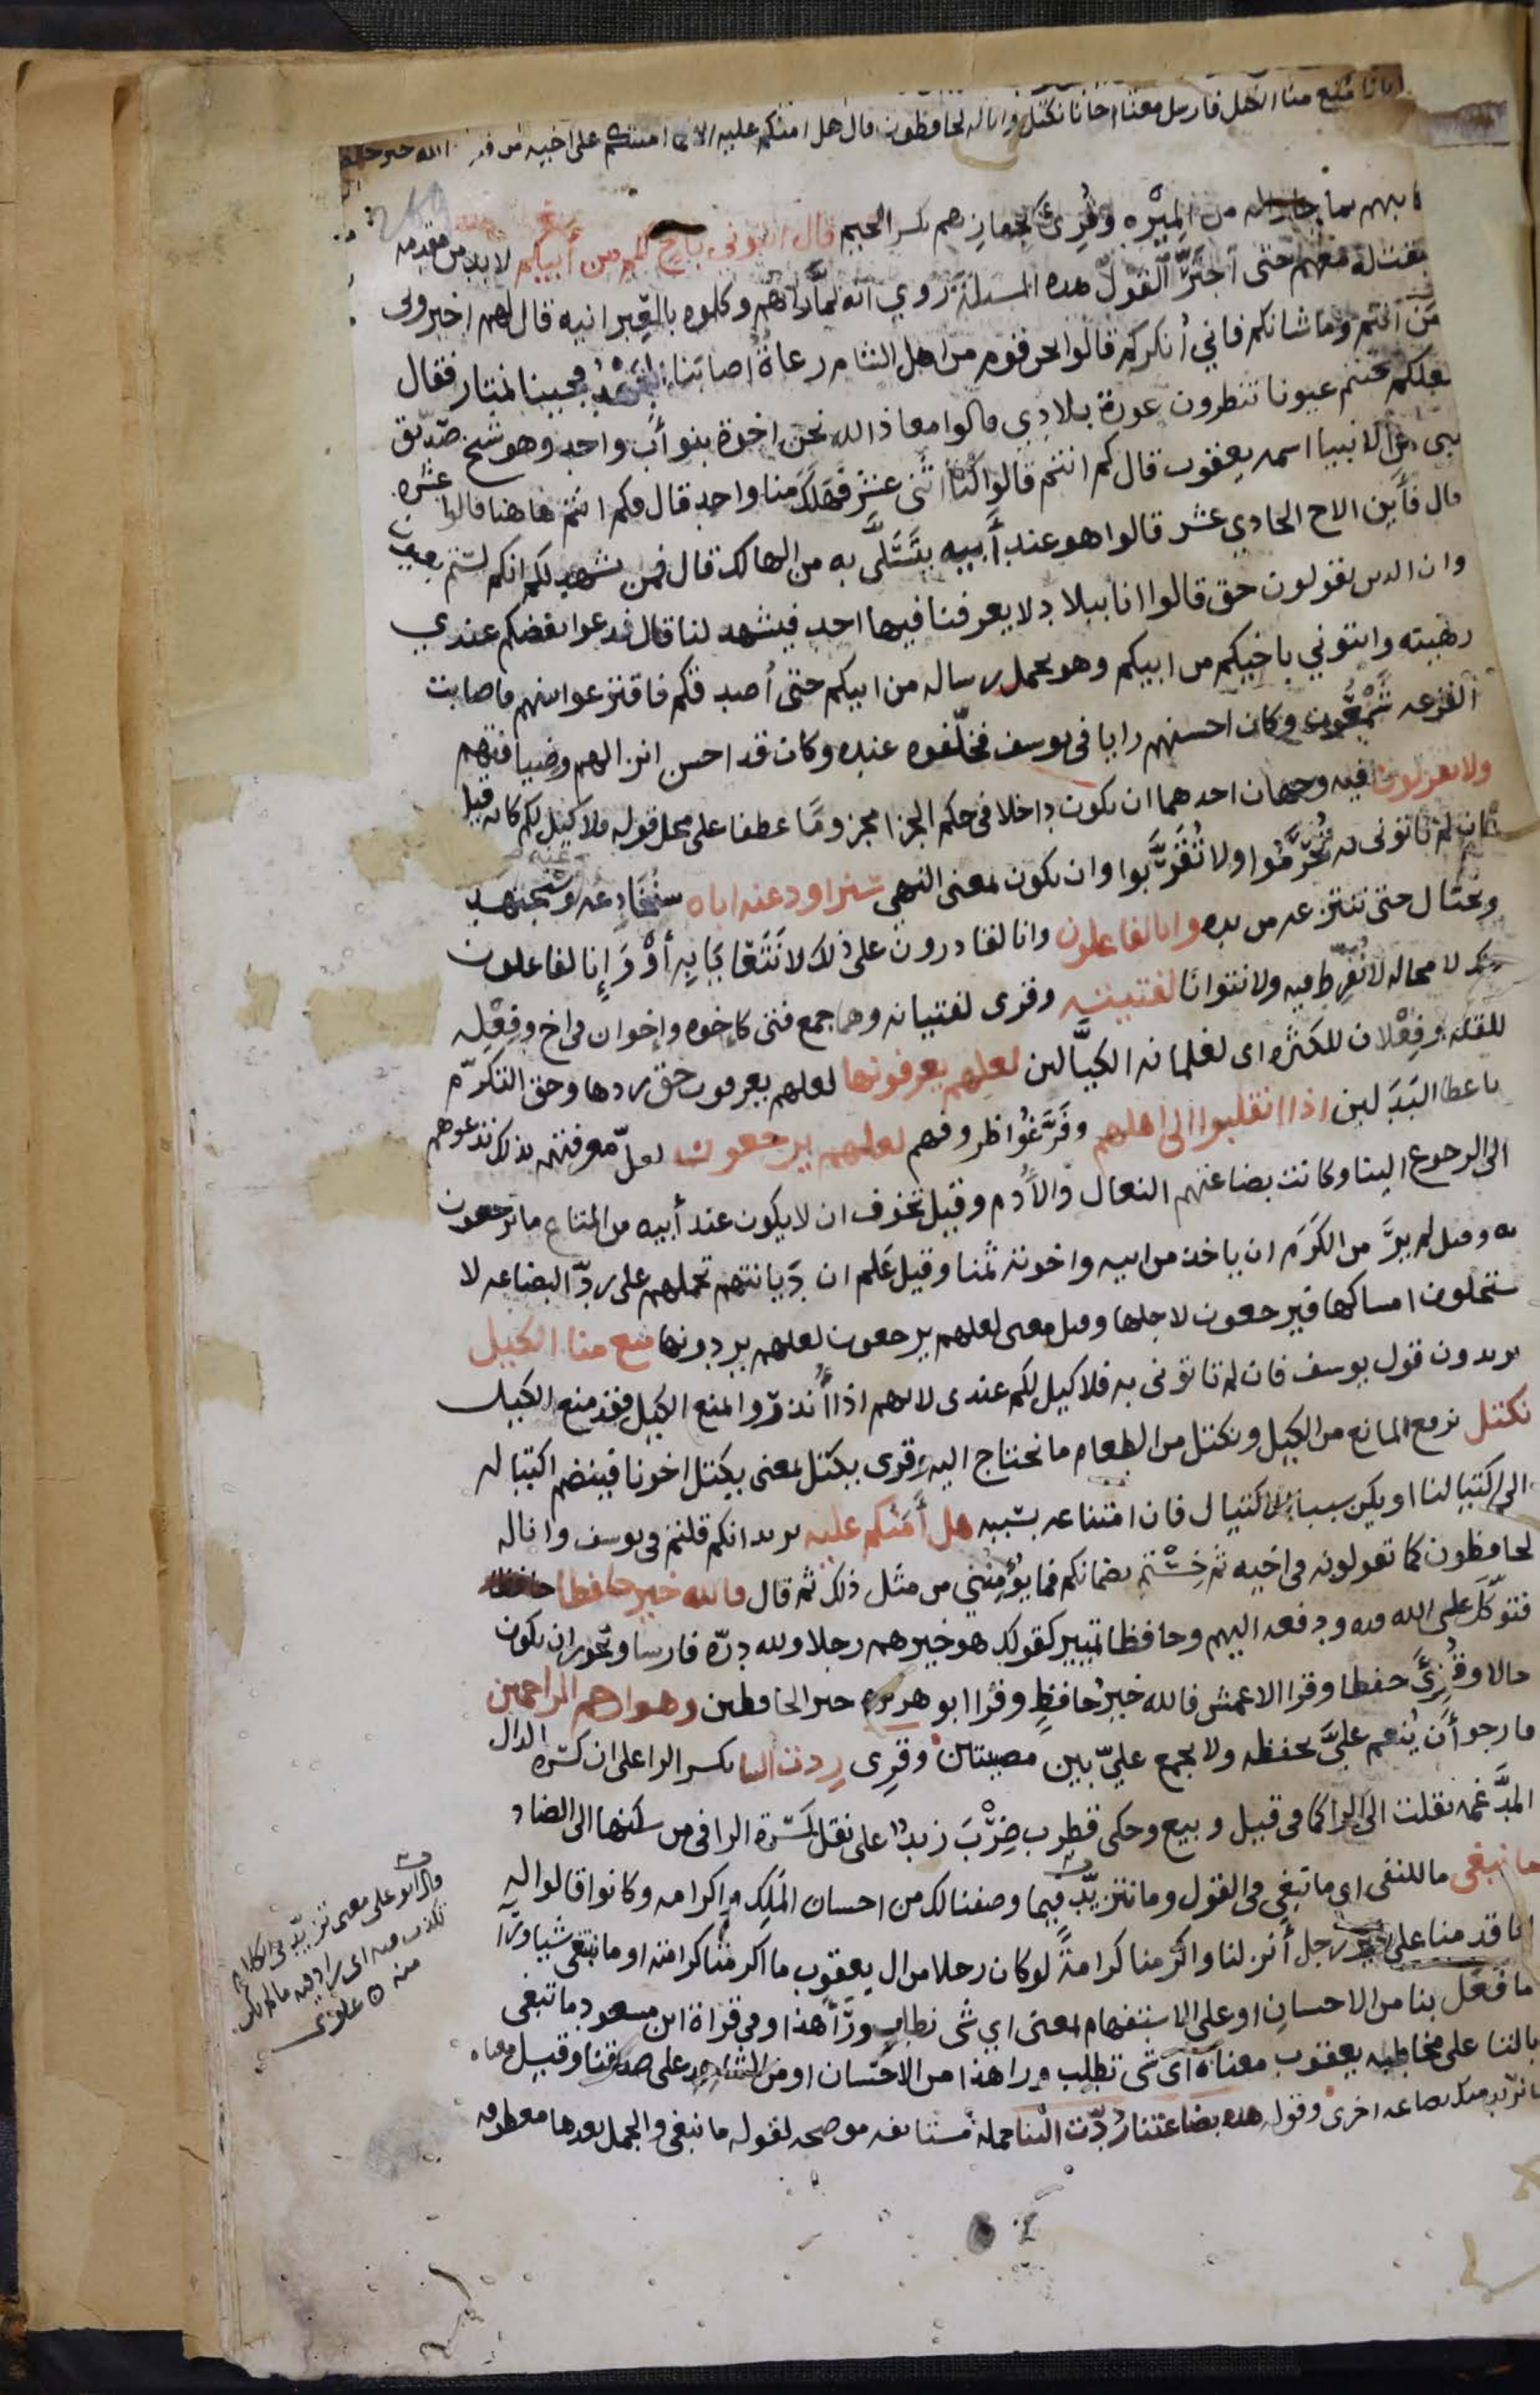 منع منا الكيل فارسل معنا اخانا نكتل وانا له لحافظون قال هل امنكم عليه الا كما امنتكم على اخيه من قبل الله خير
من المِيْره وقُرِئ بجهازهم بكسر الجيم قال ائتوني باخ لكم من أبيكم لا بد من مقدمه
معهم حتى اجترَّ القول هذه المسئلة رُوي انه لمَّا رآهم وكلموه بالعِبرانيه قال لهم اخبروني
مَن انتم وما شانكم فاني أنكركم قالوا نحن قوم من اهل الشام رعاةٌ اصابنا الجَهْدُ فجينا نمتار فقال
لعلكم جئتم عيونا تنظرون عورة بلادي قالوا معاذ الله نحن اخوة بنو أب واحد وهو شيخ صدّيق
نبي من الانبيا اسمه يعقوب قال كم انتم قالوا كنّا اثنى عشر فهلك منا واحد قال فكم انتم هاهنا قالوا عشره
قال فأين الاخ الحادي عشر قالوا هو عند أبيه يتسَلَّى به من الهالك قال فمن يشهد لكم انكم لستم بعيون
وان الذي تقولون حق قالوا انا ببلاد لا يعرفنا فيها احد فيشهد لنا قال فدعوا بعضكم عندي
رهينه وائتوني باخيكم من ابيكم وهو يحمل رساله من ابيكم حتى أصدقكم فاقترعوا بينهم فاصابت
القرعه شَمْعُون وكان احسنهم رايا في يوسف فخلّفوه عنده وكان قد احسن انزالهم وضيافتهم
ولا تقربون فيه وجهان احدهما ان يكون داخلا في حكم الجزا مجزومًا عطفا على محل قوله فلا كيل لكم كانه قيل
فان لم تاتوني به تُحْرَموا ولا تُقَرَّبوا وان يكون بمعنى النهي سنراود عنه اباه سنُخادعه عنه وسنجتهد
ونحتال حتى ننتزعه من يده وانا لفاعلون وانا لقادرون على ذلك لا نتعايا به أوْ وَإنا لفاعلون
ذلك لا محاله لا نُفرِّط فيه ولا نتوانا لفتيته وقرى لفتيانه وهما جمع فتى كاخوه وإخوان في اخ وفِعْلِه
للقله وفِعْلان للكثره اى لغلمانه الكيَّالين لعلهم يعرفونها لعلهم يعرفون حق ردها وحق التكرّم
باعطا البَدَلين اذا انقلبوا الى اهلهم وفَرَّغُوا ظروفهم لعلهم يرجعون لعلّ معرفتهم بذلك تدعوهم
الى الرجوع الينا وكانت بضاعتهم النعال والأُدُم وقيل تخوف ان لا يكون عند أبيه من المتاع ما يرجعون
به وقيل لم يرَ من الكَرَم ان ياخذ من ابيه واخوته ثمنا وقيل عَلم ان دِيانتهم تحملهم على ردّ البضاعه لا
يستحلون امساكها فيرجعون لاجلها وقيل معنى لعلهم يرجعون لعلهم يردونها منع منا الكيل
يريدون قول يوسف فان لم تاتوني به فلا كيل لكم عندى لانهم اذا أُنذروا بمنع الكيل فقد منع الكيل
نكتل نرفع المانع من الكيل ونكتل من الطعام ما نحتاج اليه وقرى يكتل بمعنى يكتل اخونا فينضم اكتياله
الى اكتيالنا او يكن سببا للاكتيال فان امتناعه بسببه هل أمَنُكم عليه يريد انكم قلتم في يوسف وانا له
لحافظون كما تقولونه في اخيه ثم خِنْتم بضمانكم فما يُؤْمِنُني من مثل ذلك ثم قال فالله خير حافظا
فتوكّلَ على الله فيه ودفعه اليهم وحافظا تمييز كقولك هو خيرهم رجلا ولله درّه فارسا ويجوز ان يكون
حالا وقُرِئَ حفظا وقرا الاعمش فالله خيرُ حافظٍ وقرا ابو هريره خير الحافظين وهو ارحم الراحمين
فارجو أن يُنعم عليَّ بحفظه ولا يجمع عليَّ بين مصيبتين وقرى رِدت الينا بكسر الرا على ان كسْرة الدال
المُدغمه نقلت الى الرا كما في قيل وبيع وحكى قطرب ضِرْبَ زيدٌ على نقل كسْرة الرا في من سكنها الى الضاد
ما نبغى ما للنفى اى ما نبغي في القول وما نتزيّد فيما وصفنا لك من احسان المَلِك واكرامه وكانوا قالوا له
انا قدمنا على خير رجل أنزلنا واكرمنا كرامةً لو كان رجلا من ال يعقوب ما اكرمنا كرامته او ما نبتغى شيا ورآ
ما فعَل بنا من الاحسان او على الاستفهام بمعنى اي شى نطلب ورآ هذا وفي قراة ابن مسعود ما تبغى
بالتا على مخاطبه يعقوب معناه اى شى تطلب ورا هذا من الاحسان او من الشاهد على صدقنا وقيل معناه
ما نريد منك بضاعه اخرى وقوله هذه بضاعتنا رُدّت الينا جملة مستانفه موضحه لقوله ما نبغى والجمل بعدها معطوفه
قالوا على معنى تزيّد في الكلام
تكذب فيه اى زاد فيه ما لم يكن
منه علوى